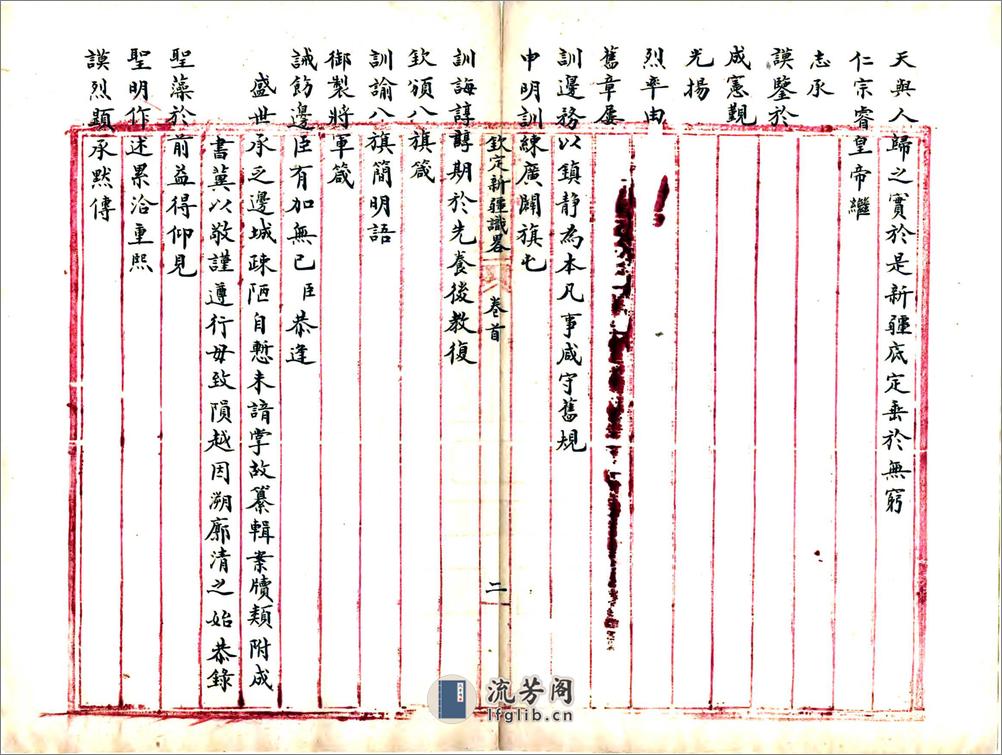 天與人歸之實於是新疆底定垂於無窮
仁宗睿皇帝繼
志承
謨鑒於
成憲覲
光揚
烈率由
舊章屢
訓邊務以鎮静為本凡事咸守舊規
申明訓練廣闢旗屯
欽定新疆識畧 卷首 二
訓誨諄諄期於先養後教復
欽頒八旗箴
訓諭八旗簡明語
御製將軍箴
誡飭邊臣有加無已臣恭逢
盛世承之邊城疎陋自慙未諳掌故纂輯案牘類附成
書冀以敬謹遵行毋致隕越因溯廓清之始恭錄
聖藻於前益得仰見
聖明作述累洽重熙
謨烈顯承默傳
流芳阁
lfglib.cn